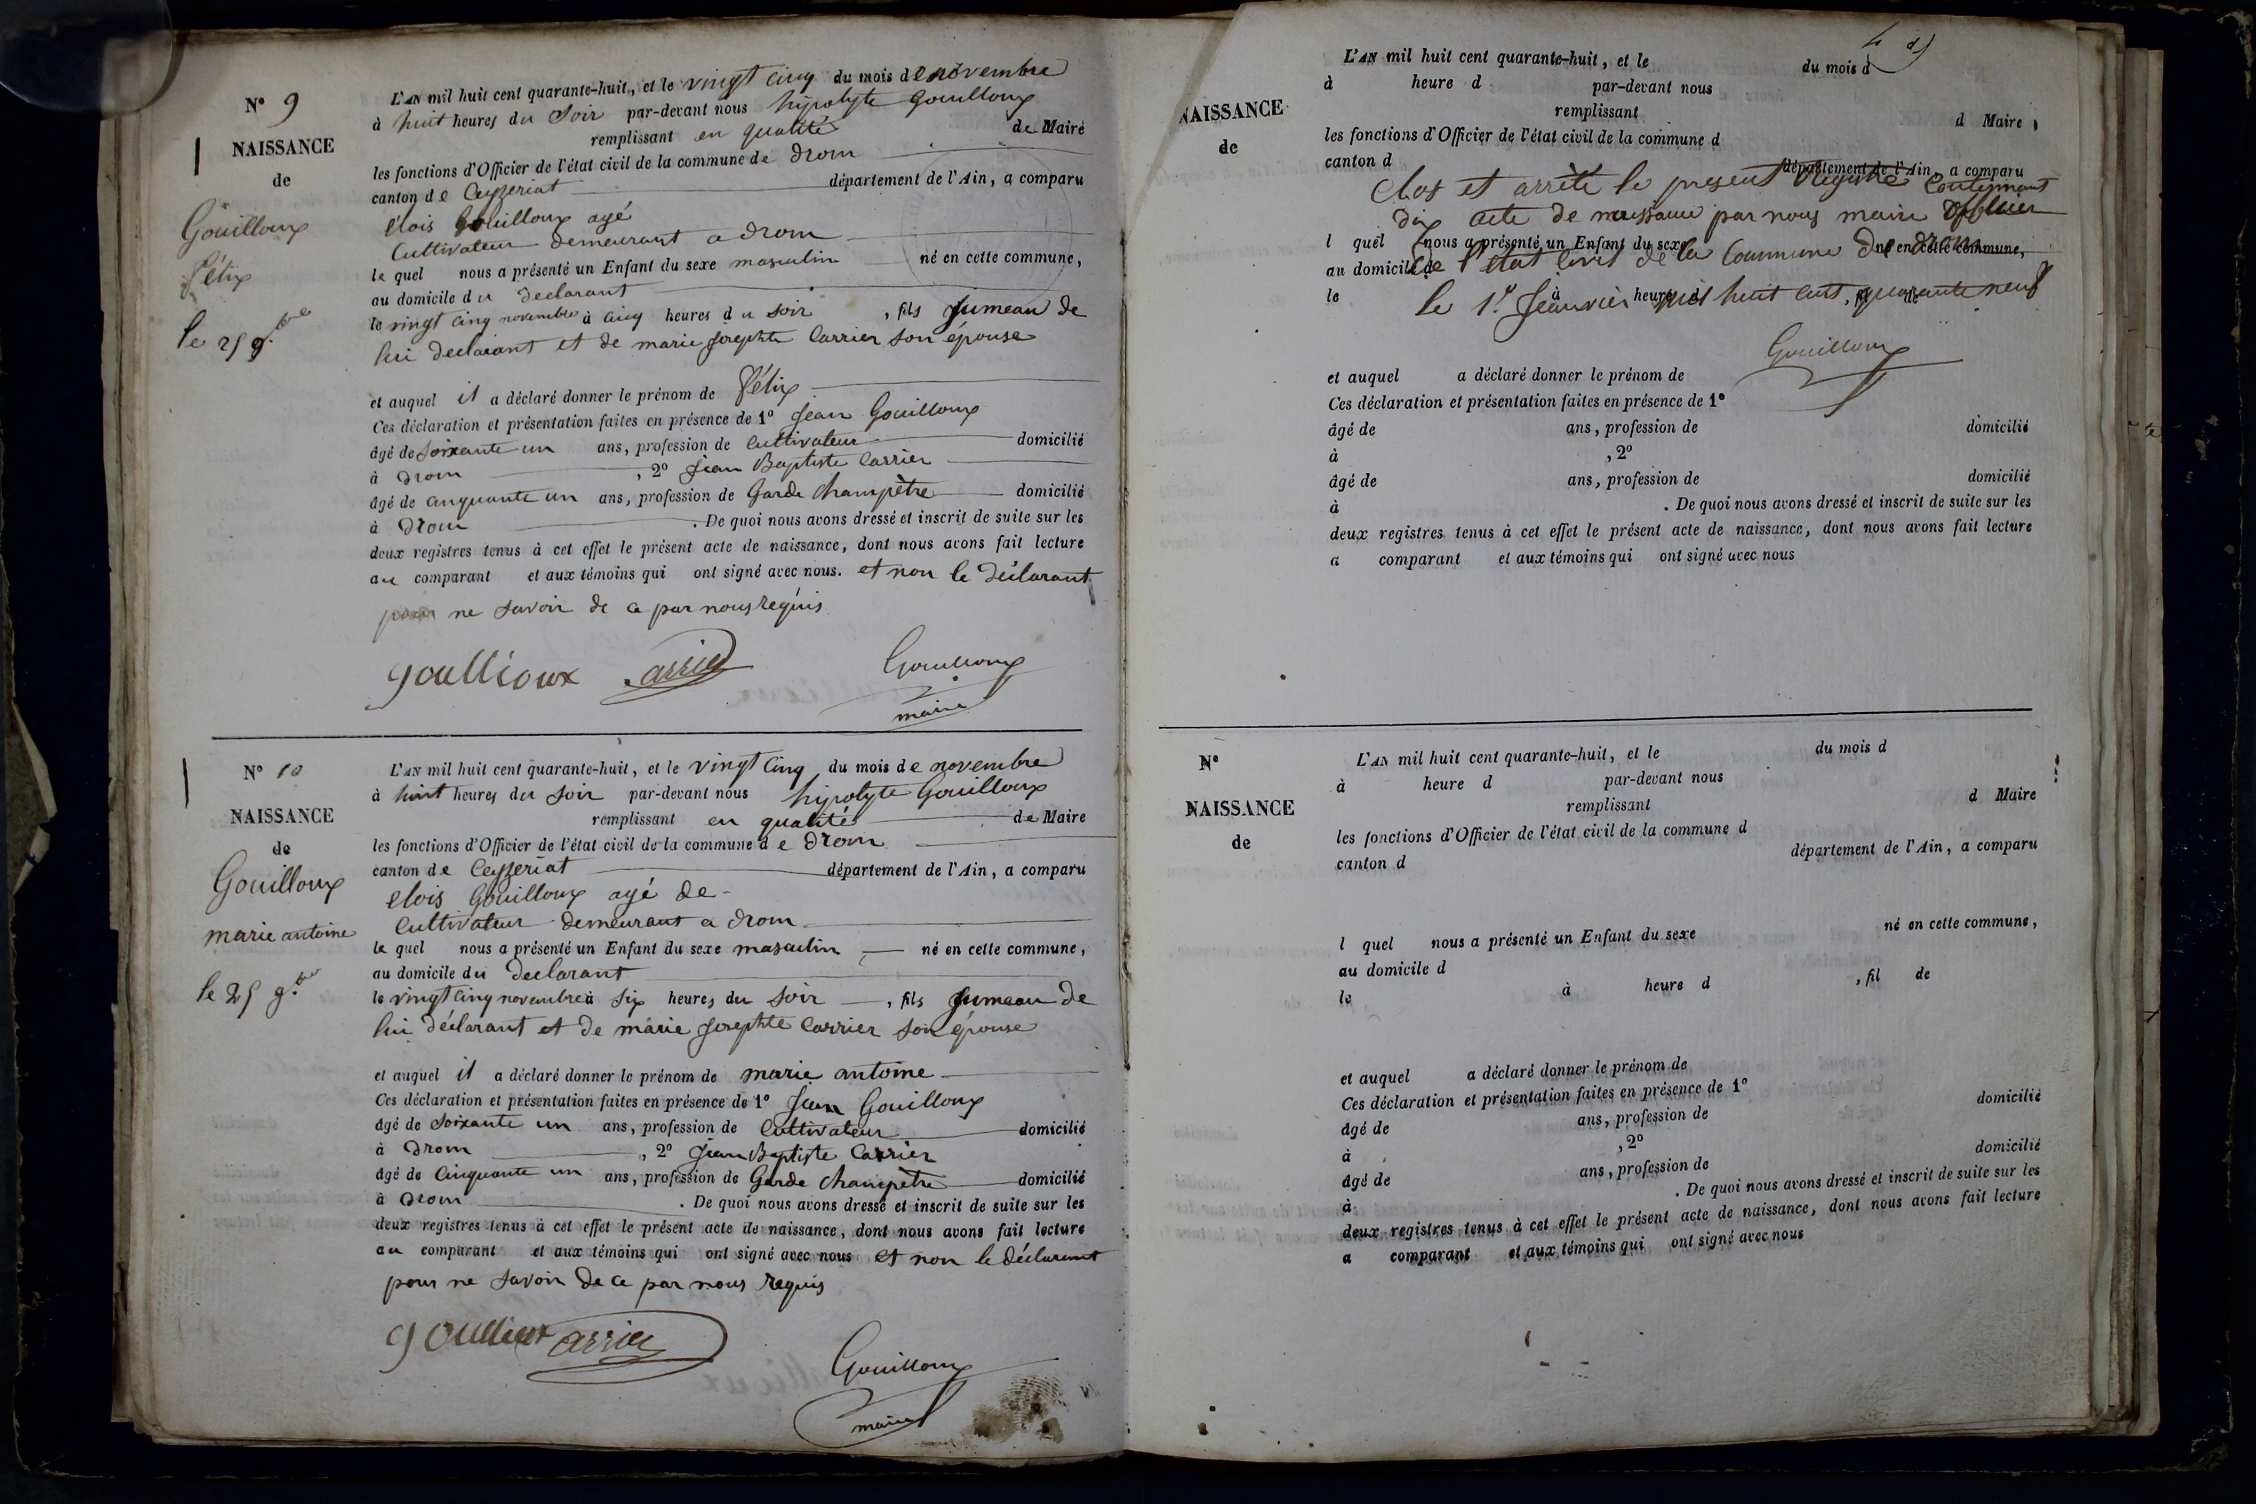 N° 9
NAISSANCE
de
Gouilloux
Félix
le 25 9.bre
L'AN mil huit cent quarante-huit, et le vingt cinq du mois de novembre
à huit heures du Soir par-devant nous hipolyte Gouilloux
remplissant en qualité de Maire
les fonctions d'Officier de l'état civil de la commune de drom
canton de Ceyzeriat département de l'Ain, a comparu
élois Gouilloux agé
Cultivateur demeurant a drom
le quel nous a présenté un Enfant du sexe masculin né en cette commune,
au domicile du declarant
le vingt cinq novembre à cinq heures du soir, fils jumeau de
lui declarant et de marie josephte Carrier son épouse
et auquel il a déclaré donner le prénom de Félix
Ces déclaration et présentation faites en présence de 1° jean Gouilloux
âgé de Soixante un ans, profession de Cultivateur domicilié
à drom, 2° jean Baptiste Carrier
âgé de cinquante un ans, profession de Garde champêtre domicilié
à drom. De quoi nous avons dressé et inscrit de suite sur les
deux registres tenus à cet effet le présent acte de naissance, dont nous avons fait lecture
au comparant et aux témoins qui ont signé avec nous. et non le déclarant
pour ne savoir de ce par nous requis
goullioux arrier Gouilloux
maire
N° 10
NAISSANCE
de
Gouilloux
marie antoine
le 25 9.bre
L'AN mil huit cent quarante-huit, et le vingt cinq du mois de novembre
à huit heures du soir par-devant nous hipolyte Gouilloux
remplissant en qualité de Maire
les fonctions d'Officier de l'état civil de la commune de drom
canton de Ceyzeriat département de l'Ain, a comparu
elois Gouilloux agé de
Cultivateur demeurant a drom
le quel nous a présenté un Enfant du sexe masculin né en cette commune,
au domicile du declarant
le vingt cinq novembre à six heures du soir, fils jumeau de
lui déclarant et de marie josephte Carrier son épouse
et auquel il a déclaré donner le prénom de marie antoine
Ces déclaration et présentation faites en présence de 1° jean Gouilloux
âgé de soixante un ans, profession de Cultivateur domicilié
à drom, 2° jean Baptiste Carrier
âgé de cinquante un ans, profession de Garde champêtre domicilié
à drom. De quoi nous avons dressé et inscrit de suite sur les
deux registres tenus à cet effet le présent acte de naissance, dont nous avons fait lecture
au comparant et aux témoins qui ont signé avec nous et non le déclarant
pour ne savoir de ce par nous requis
goullioux arrier Gouilloux
maire
NAISSANCE
de
L'AN mil huit cent quarante-huit, et le du mois d
à heure d par-devant nous
remplissant d Maire
les fonctions d'Officier de l'état civil de la commune d
canton d département de l'Ain, a comparu
Clos et arrêté le présent Registre Contenant
dix acte de naissance par nous maire officier
l quel nous a présenté un Enfant du sexe né en cette commune,
de l'état civil de la Commune de drom
au domicile d
le à heure d, fil de
le 1.er Jeanvier mil huit cent quarante neuf
Gouilloux
et auquel a déclaré donner le prénom de
Ces déclaration et présentation faites en présence de 1°
âgé de ans, profession de domicilié
à , 2°
âgé de ans, profession de domicilié
à . De quoi nous avons dressé et inscrit de suite sur les
deux registres tenus à cet effet le présent acte de naissance, dont nous avons fait lecture
a comparant et aux témoins qui ont signé avec nous
N°
NAISSANCE
de
L'AN mil huit cent quarante-huit, et le du mois d
à heure d par-devant nous
remplissant d Maire
les fonctions d'Officier de l'état civil de la commune d
canton d département de l'Ain, a comparu
l quel nous a présenté un Enfant du sexe né en cette commune,
au domicile d
le à heure d, fil de
et auquel a déclaré donner le prénom de
Ces déclaration et présentation faites en présence de 1°
âgé de ans, profession de domicilié
à , 2°
âgé de ans, profession de domicilié
à . De quoi nous avons dressé et inscrit de suite sur les
deux registres tenus à cet effet le présent acte de naissance, dont nous avons fait lecture
a comparant et aux témoins qui ont signé avec nous